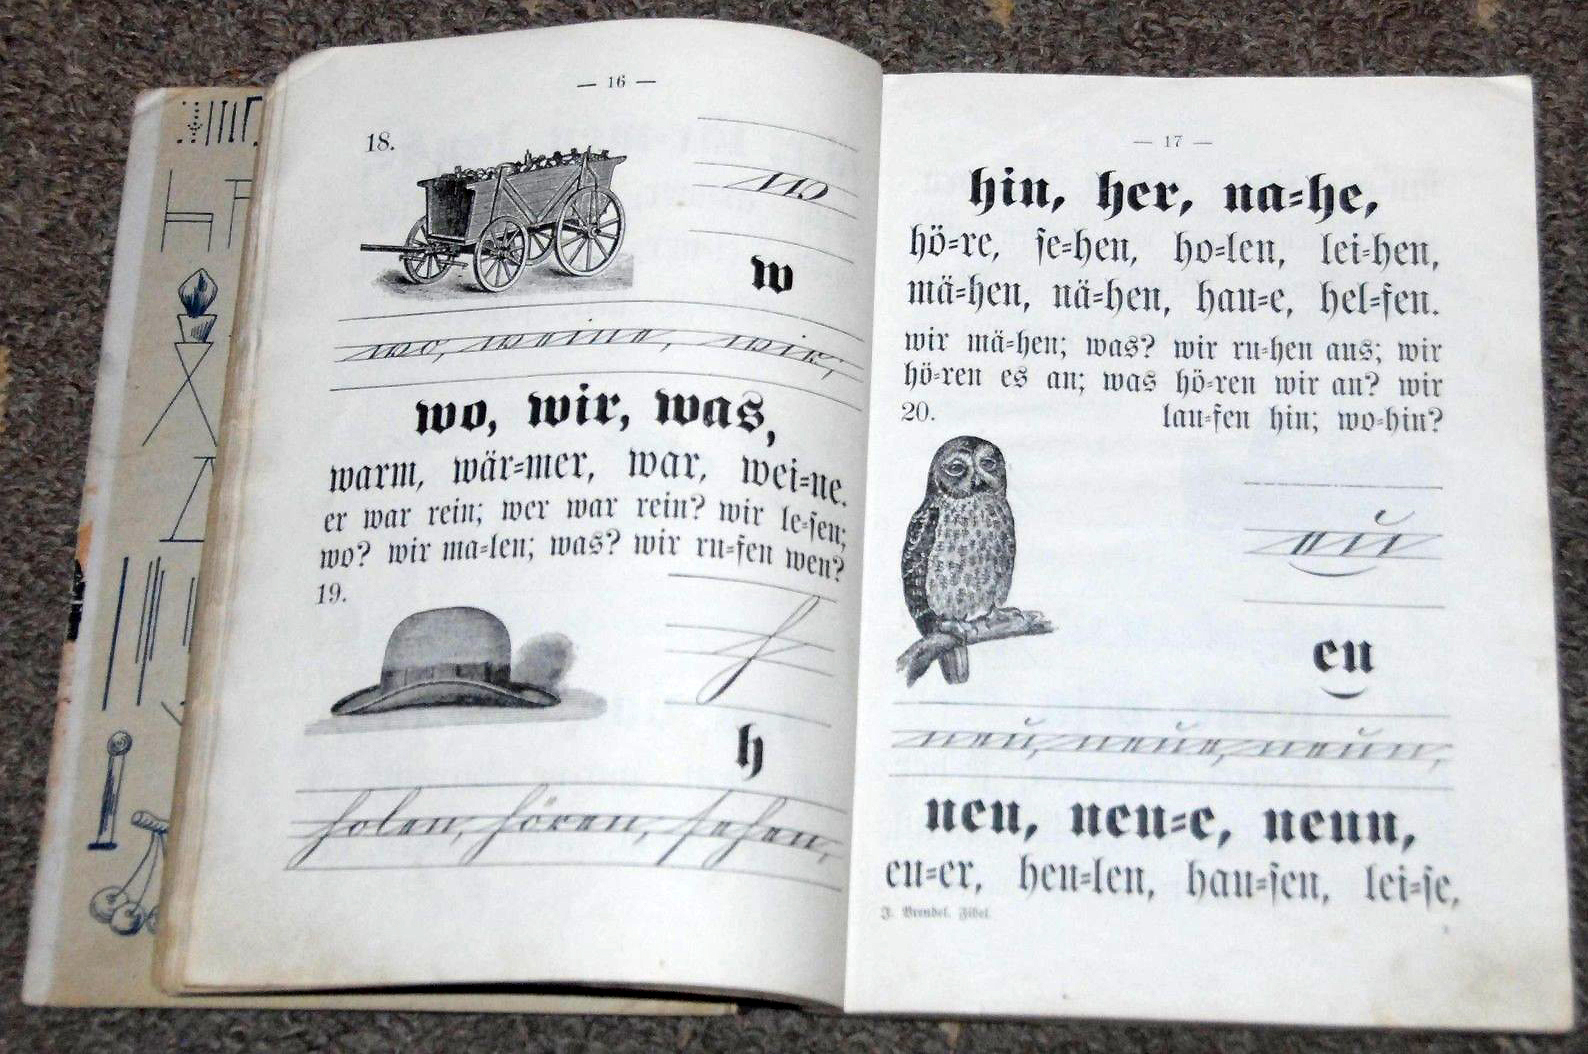 — 16 —
18.
w
w
wo, weine, wir,
wo, wir, was,
warm, wär=mer, war, wei=ne.
er war rein; wer war rein? wir le=sen;
wo? wir ma=len; was? wir ru=fen wen?
19.
h
h
holen, hören, sehen,
— 17 —
hin, her, na=he,
hö=re, se=hen, ho=len, lei=hen,
mä=hen, nä=hen, hau=e, hel=fen.
wir mä=hen; was? wir ru=hen aus; wir
hö=ren es an; was hö=ren wir an? wir
lau=fen hin; wo=hin?
20.
eu
eu
neu, neue, neun,
neu, neu=e, neun,
eu=er, heu=len, hau=sen, lei=se,
J. Brendel, Fibel.